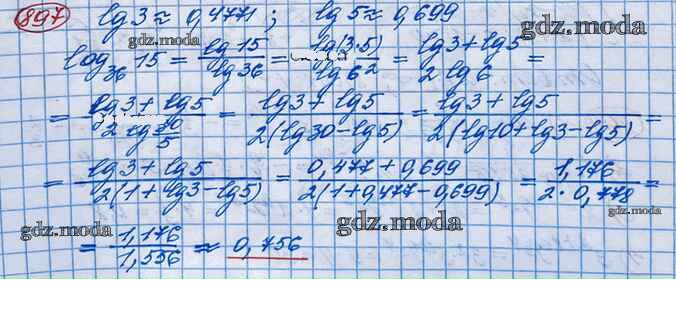 897 lg 3 ≈ 0,4771 ; lg 5 ≈ 0,699
gdz.moda gdz.moda
log₃₆ 15 = lg 15 / lg 36 = lg(3·5) / lg 6² = (lg 3 + lg 5) / (2 lg 6) =
= (lg 3 + lg 5) / (2 lg 30/5) = (lg 3 + lg 5) / (2(lg 30 − lg 5)) = (lg 3 + lg 5) / (2(lg 10 + lg 3 − lg 5)) =
gdz.moda gdz.moda
= (lg 3 + lg 5) / (2(1 + lg 3 − lg 5)) = (0,477 + 0,699) / (2(1 + 0,477 − 0,699)) = 1,176 / (2 · 0,778) =
gdz.moda gdz.moda gdz.moda
= 1,176 / 1,556 ≈ 0,756